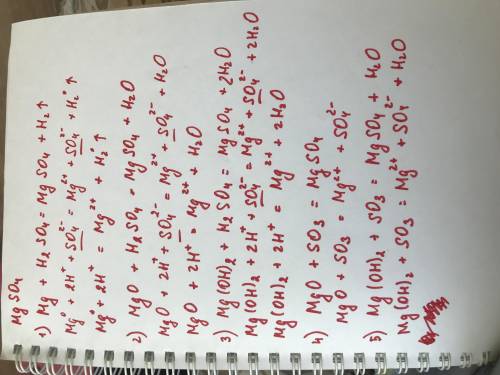 MgSO4
1) Mg + H2SO4 = MgSO4 + H2↑
Mg° + 2H⁺ + SO4²⁻ = Mg²⁺ + SO4²⁻ + H2°↑
Mg° + 2H⁺ = Mg²⁺ + H2°↑
2) MgO + H2SO4 = MgSO4 + H2O
MgO + 2H⁺ + SO4²⁻ = Mg²⁺ + SO4²⁻ + H2O
MgO + 2H⁺ = Mg²⁺ + H2O
3) Mg(OH)2 + H2SO4 = MgSO4 + 2H2O
Mg(OH)2 + 2H⁺ + SO4²⁻ = Mg²⁺ + SO4²⁻ + 2H2O
Mg(OH)2 + 2H⁺ = Mg²⁺ + 2H2O
4) MgO + SO3 = MgSO4
MgO + SO3 = Mg²⁺ + SO4²⁻
5) Mg(OH)2 + SO3 = MgSO4 + H2O
Mg(OH)2 + SO3 = Mg²⁺ + SO4²⁻ + H2O